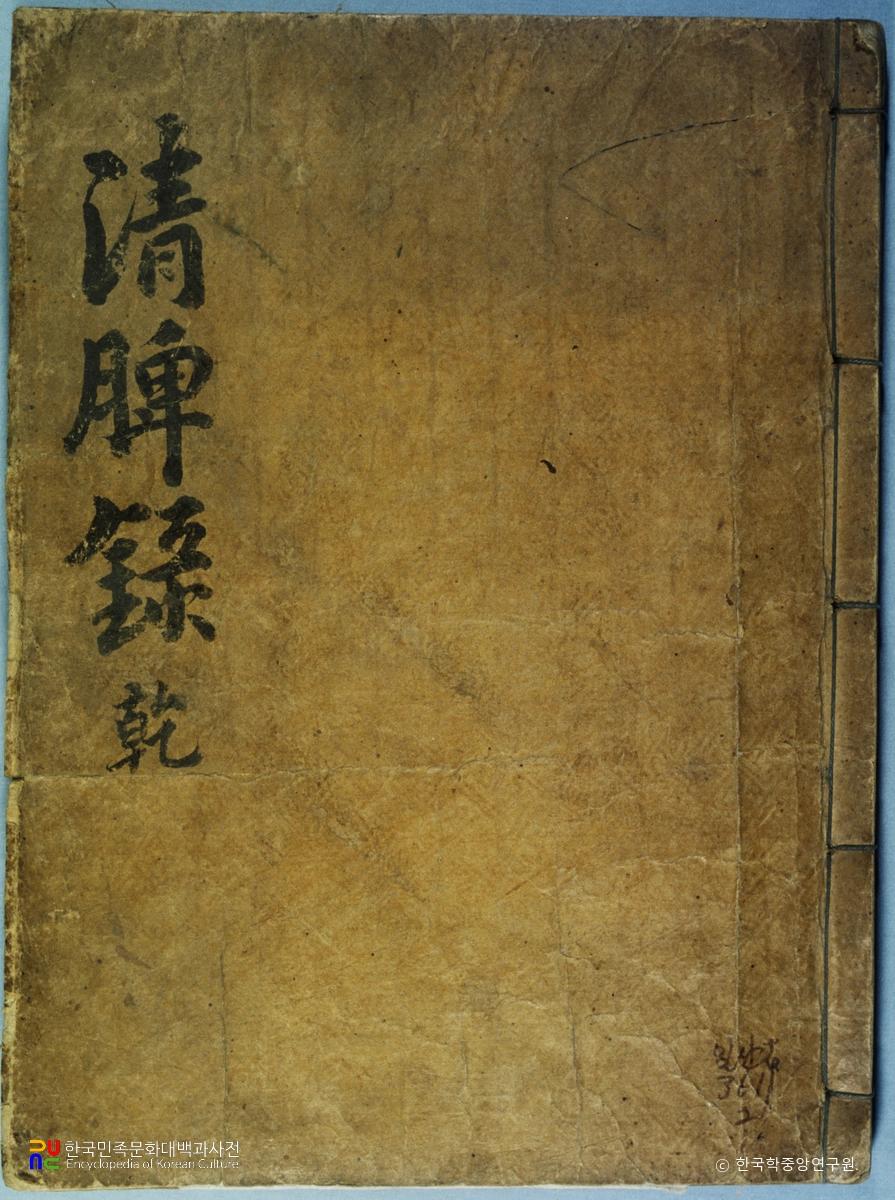 清脾錄 乾
일산古
3611
2
한국민족문화대백과사전
Encyclopedia of Korean Culture
© 한국학중앙연구원.